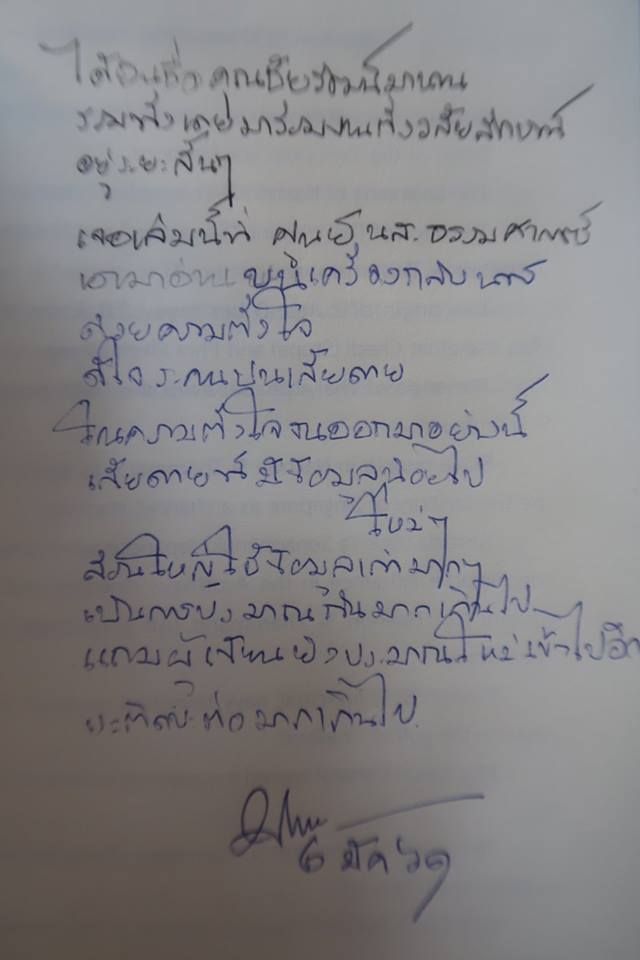 ได้ยินชื่อ คุณชัยวัฒน์มานาน
รวมทั้งเคยมาร่วมงานที่วลัยลักษณ์
อยู่ระยะสั้นๆ
เจอเล่มนี้ที่ ศูนย์ นส. ธรรมศาสตร์
เอามาอ่านบนเครื่องกลับนคร
ด้วยความตั้งใจ
ดีใจระคนปนเสียดาย
ในความตั้งใจจนออกมาอย่างนี้
เสียดายที่มีข้อมูลน้อยไป
ใหม่ๆ
ส่วนใหญ่ใช้ข้อมูลเก่ามากๆ
เป็นการประมาณกันมากเกินไป
แถมผู้เขียนยังประมาณใหม่เข้าไปอีก
ปะติดปะต่อมากเกินไป
๖ มีค ๖๑